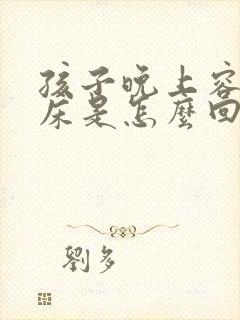 孩子晚上容
床是怎麼回
劉多